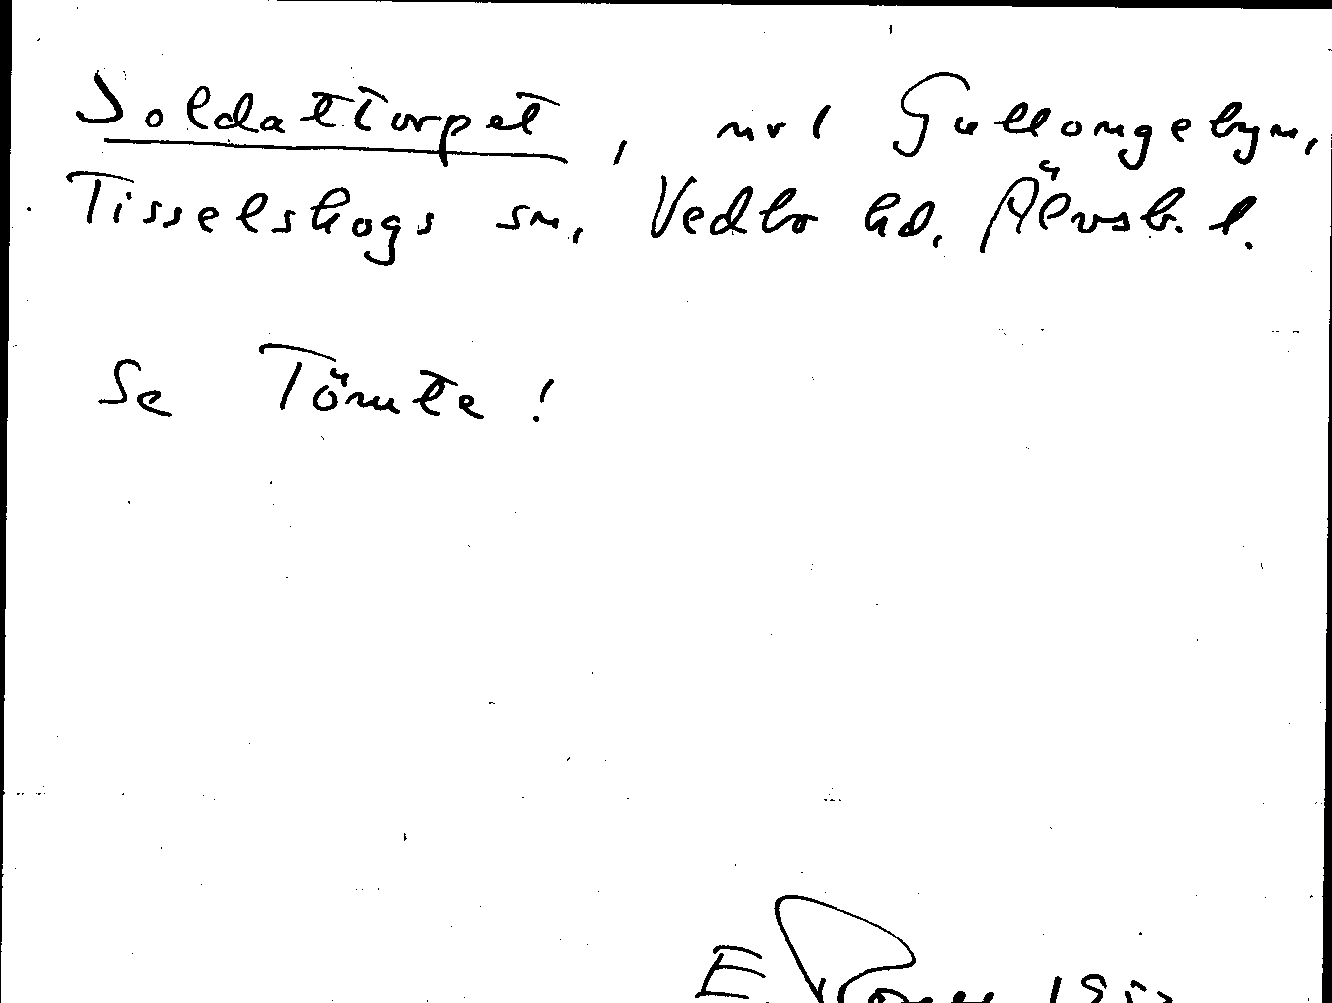 Soldattorpet, nr 1 Gullongebyn,
Tisselskogs sn, Vedbo hd, Älvsb. l.
Se Tömte!
E.